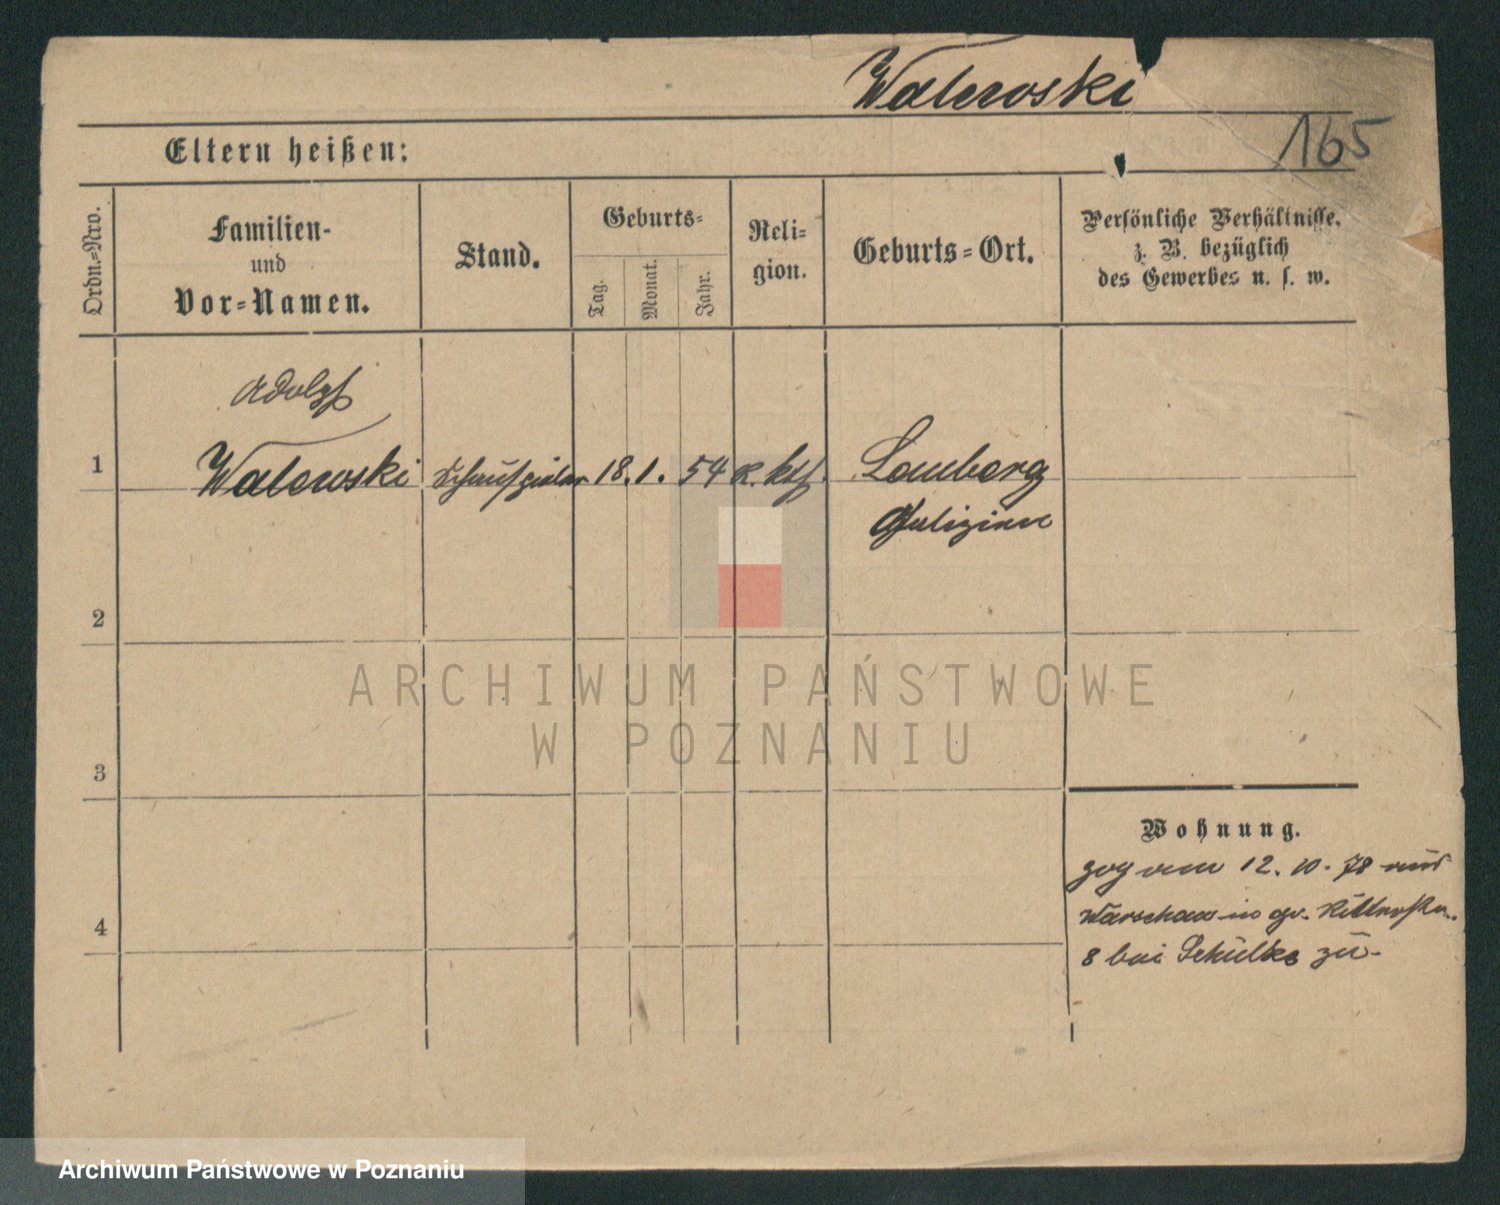 Walewski
165
Eltern heißen:
Ordn.-Nro.
Familien-
und
Vor-Namen.
Stand.
Geburts-
Tag.
Monat.
Jahr.
Reli-
gion.
Geburts-Ort.
Persönliche Verhältnisse,
z. B. bezüglich
des Gewerbes u. s. w.
Adolf
1 Walewski Schauspieler 18. 1. 54 k. kth. Lemberg
Galizien
2
3
4
Wohnung.
zog am 12. 10. 78 aus
Warschau in gr. Ritterstr.
8 bei Schulke zu.
ARCHIWUM PAŃSTWOWE
W POZNANIU
Archiwum Państwowe w Poznaniu